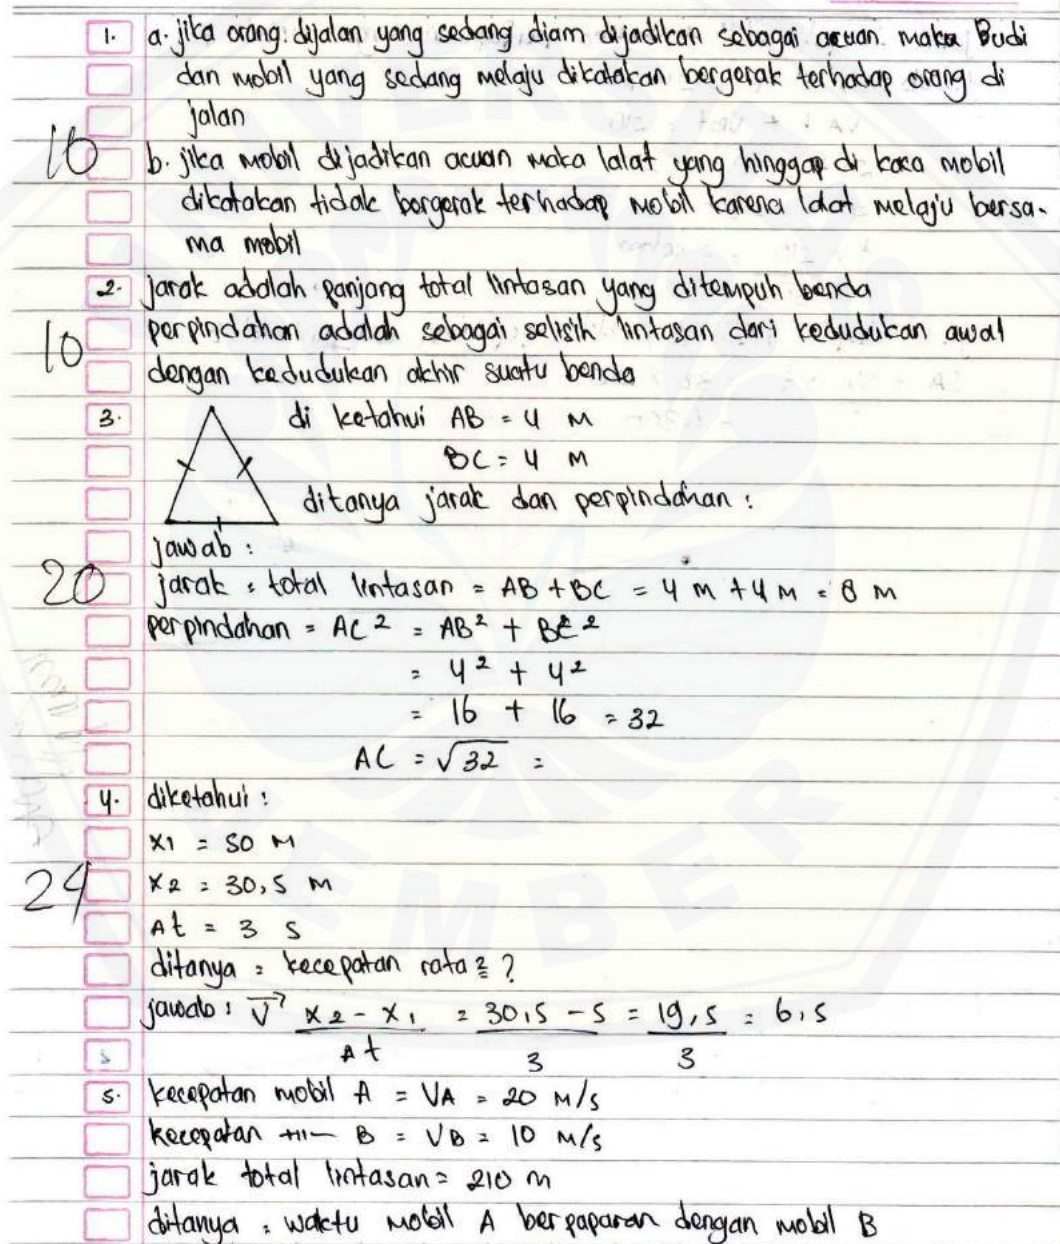 1. a. jika orang dijalan yang sedang diam dijadikan sebagai acuan maka Budi
dan mobil yang sedang melaju dikatakan bergerak terhadap orang di
jalan
10
b. jika mobil dijadikan acuan maka lalat yang hinggap di kaca mobil
dikatakan tidak bergerak terhadap mobil karena lalat melaju bersa-
ma mobil
2. jarak adalah panjang total lintasan yang ditempuh benda
10
perpindahan adalah sebagai selisih lintasan dari kedudukan awal
dengan kedudukan akhir suatu benda
3. di ketahui AB = 4 M
BC = 4 M
ditanya jarak dan perpindahan :
jawab :
20
jarak = total lintasan = AB + BC = 4 m + 4 M = 8 M
perpindahan = AC² = AB² + BC²
= 4² + 4²
= 16 + 16 = 32
AC = √32 =
4. diketahui :
x1 = 50 M
24
x2 = 30,5 m
At = 3 s
ditanya = kecepatan rata2 ?
jawab : V x2 - x1 / At = 30,5 - 5 / 3 = 19,5 / 3 = 6,5
5. kecepatan mobil A = VA = 20 M/s
kecepatan -11- B = VB = 10 M/s
jarak total lintasan = 210 m
ditanya = waktu mobil A berpaparan dengan mobil B
EMBER